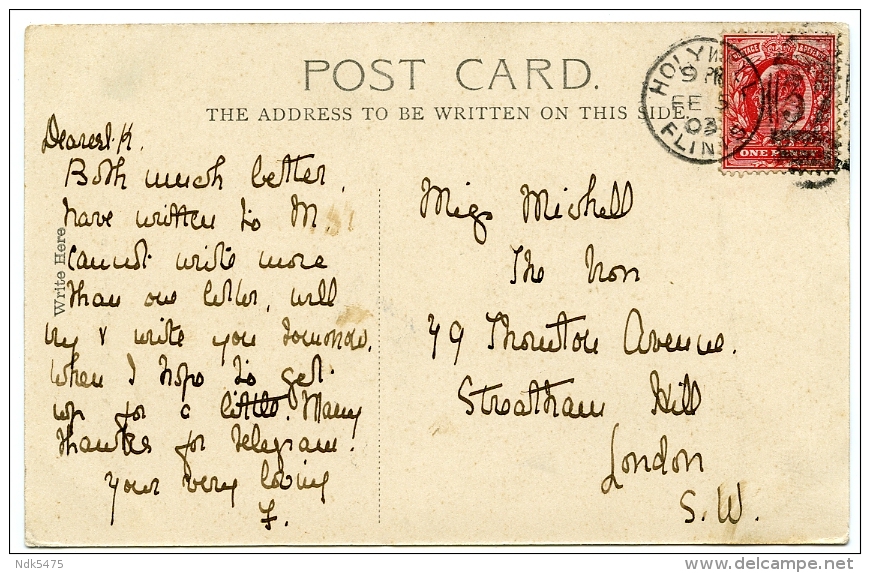 POST CARD.
THE ADDRESS TO BE WRITTEN ON THIS SIDE.
HOLYWELL
9 PM
FE 5
03
FLINTS
ONE PENNY
Write Here
Dearest K.
Both much better,
have written to M.
Cannot write more
than one letter, will
try & write you tomorrow,
when I hope to get
up for a little. Many
thanks for telegram.
Your very loving
F.
Miss Michell
The
49 Thornton Avenue.
Streatham Hill
London
S.W.
Ndk5475
www.delcampe.net